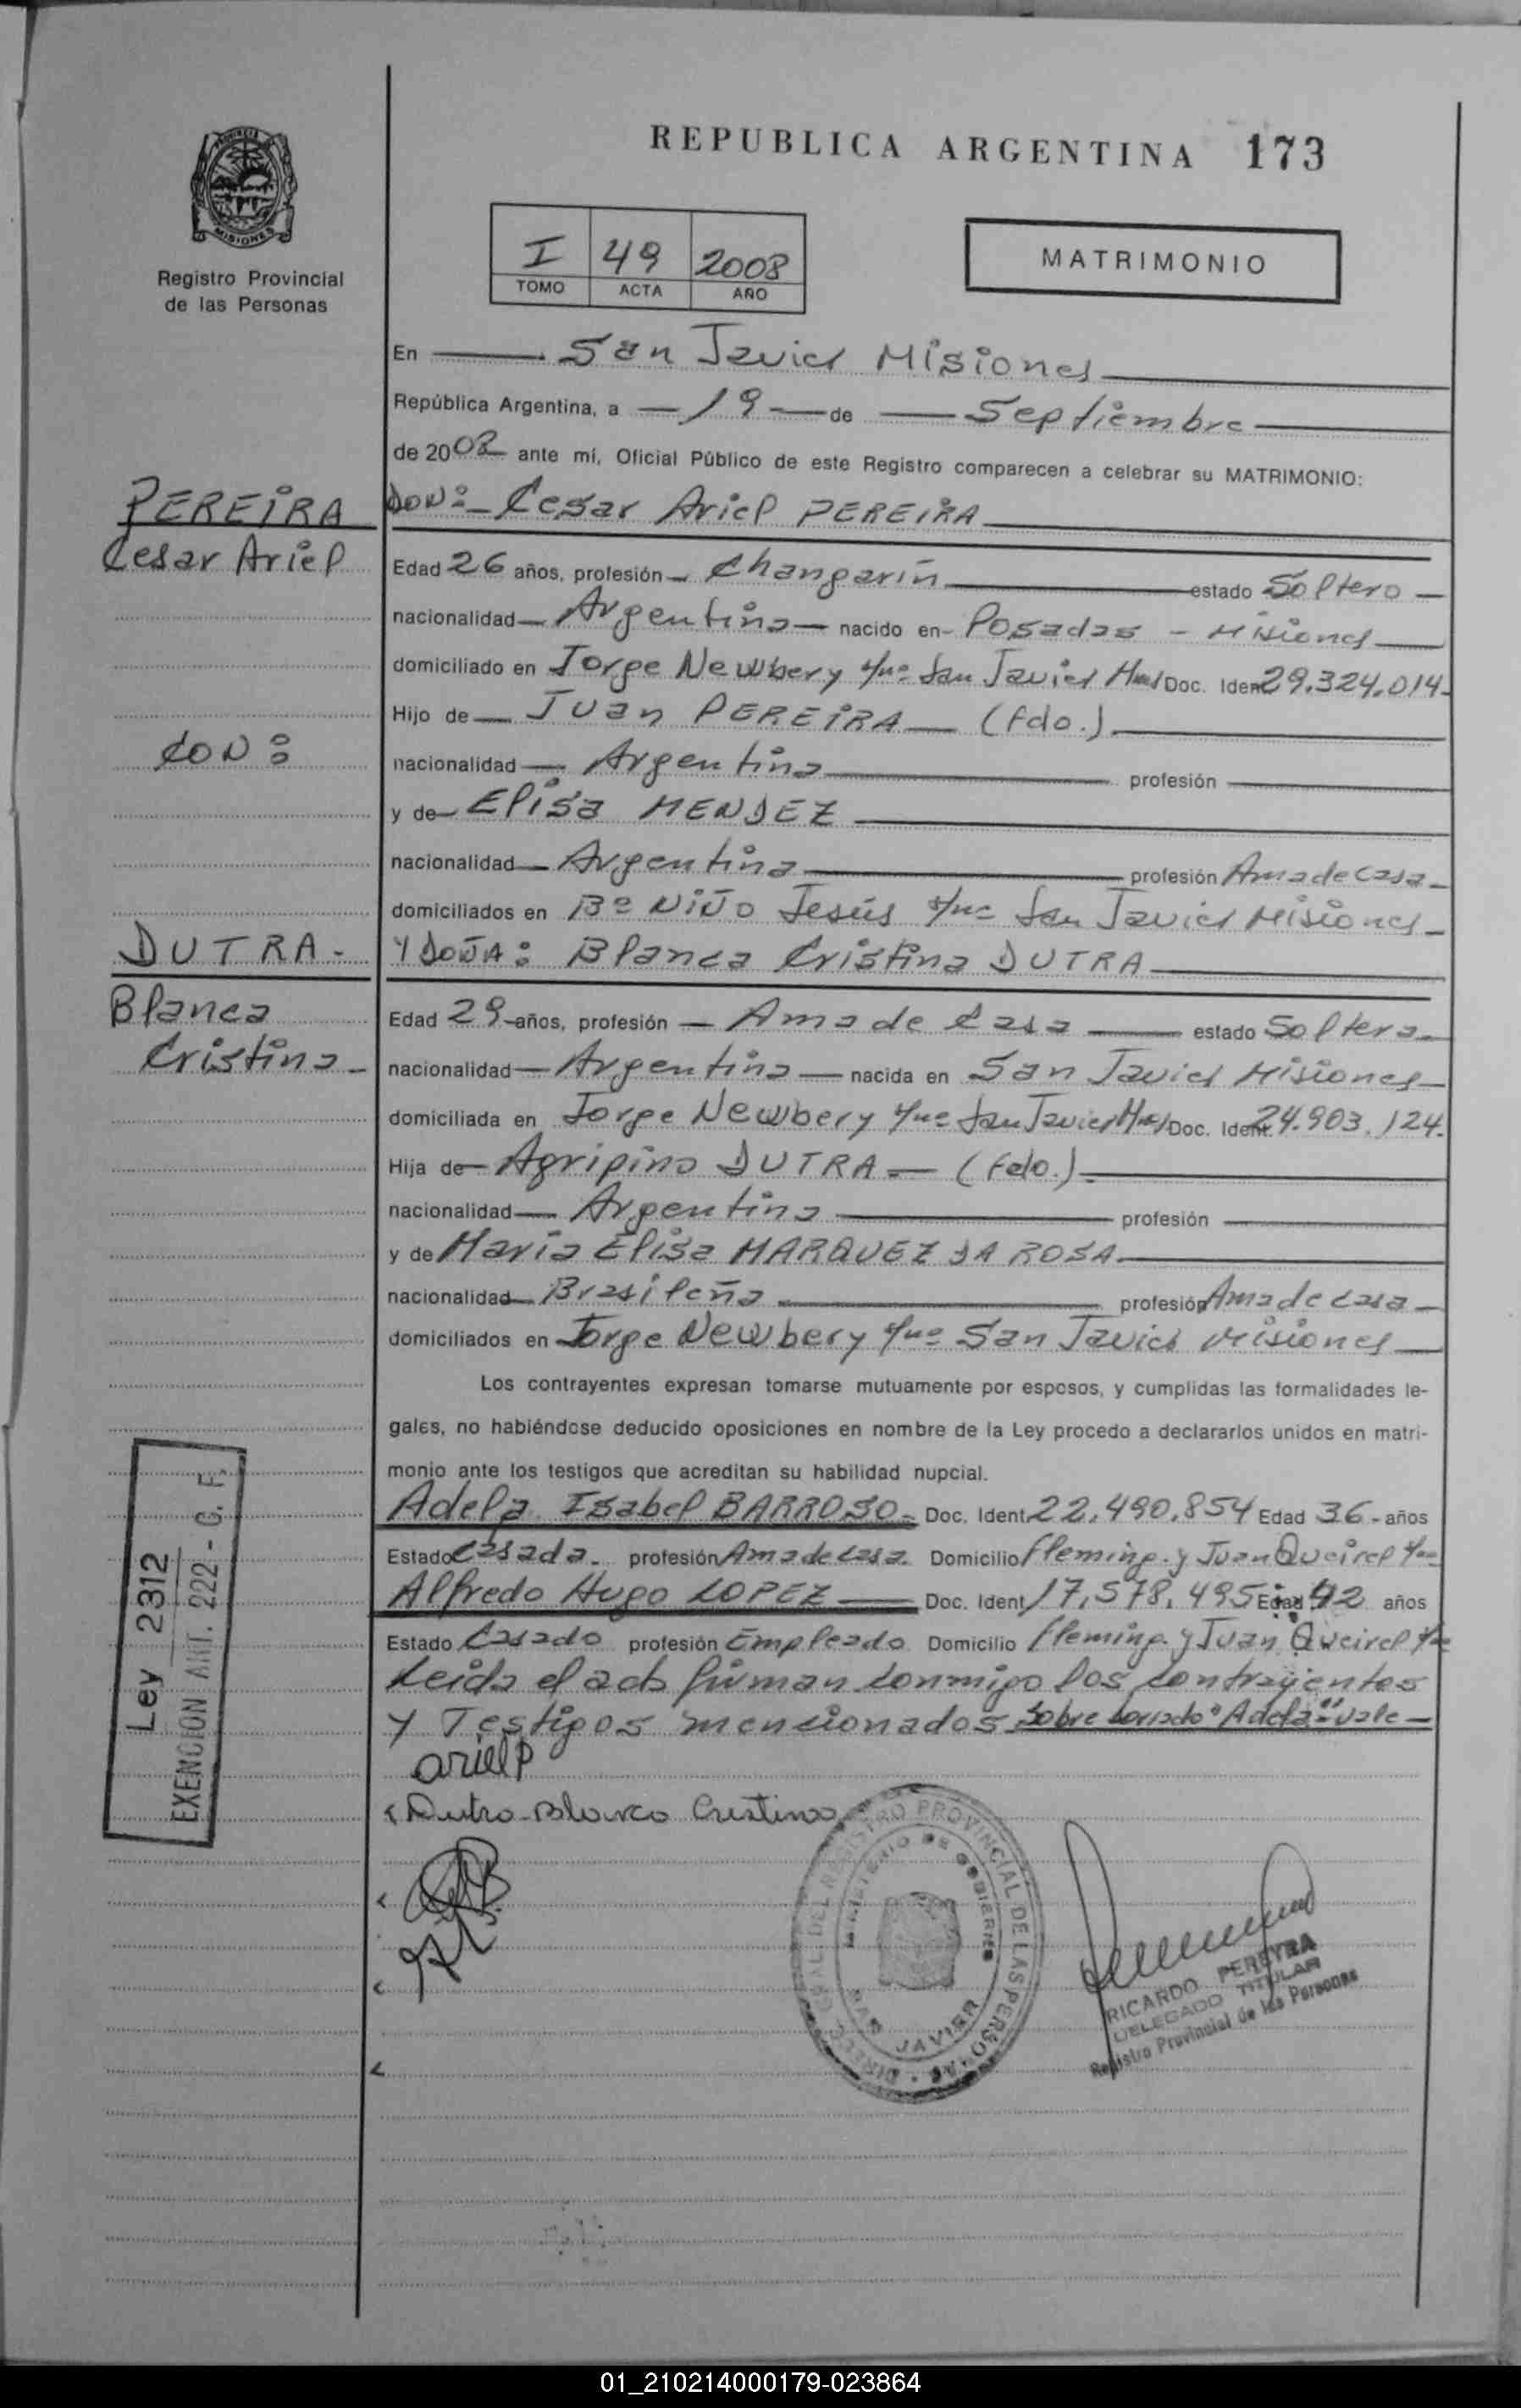 REPUBLICA ARGENTINA 173
PROVINCIA
MISIONES
Registro Provincial
de las Personas
I 49 2008
TOMO ACTA AÑO
MATRIMONIO
En San Javier Misiones
República Argentina, a 19 de Septiembre
de 2008 ante mí, Oficial Público de este Registro comparecen a celebrar su MATRIMONIO:
PEREiRA
Cesar Ariel
CON:
DUTRA.
Blanca
Cristina
DON: Cesar Ariel PEREiRA
Edad 26 años, profesión Changarín estado Soltero
nacionalidad Argentina nacido en Posadas - Misiones
domiciliado en Jorge Newbery s/nº San Javier Mnes Doc. Ident. 29.324.014
Hijo de Juan PEREiRA (fdo.)
nacionalidad Argentina profesión
y de Elisa MENDEZ
nacionalidad Argentina profesión Ama de casa
domiciliados en Bº NiÑo Jesús s/nº San Javier Misiones
Y DOÑA: Blanca Cristina DUTRA
Edad 29 años, profesión Ama de Casa estado Soltera
nacionalidad Argentina nacida en San Javier Misiones
domiciliada en Jorge Newbery s/nº San Javier Mnes Doc. Ident. 24.903.124.
Hija de Agripino DUTRA (fdo.)
nacionalidad Argentina profesión
y de María Elisa MARQUEZ DA ROSA
nacionalidad Brasileña profesión Ama de casa
domiciliados en Jorge Newbery s/nº San Javier Misiones
Los contrayentes expresan tomarse mutuamente por esposos, y cumplidas las formalidades le-
gales, no habiéndose deducido oposiciones en nombre de la Ley procedo a declararlos unidos en matri-
monio ante los testigos que acreditan su habilidad nupcial.
Adela Isabel BARROSO Doc. Ident. 22.490.854 Edad 36 años
Estado Casada profesión Ama de casa Domicilio Fleming y Juan Queirel s/nº
Alfredo Hugo LOPEZ Doc. Ident. 17.578.495 Edad 42 años
Estado Casado profesión Empleado Domicilio Fleming y Juan Queirel s/nº
Leida el acta firman conmigo los contrayentes
y Testigos mencionados Sobre borrado "Adela" vale
Ley 2312
EXENCION ART. 222 - C. F.
ariel P
Dutra Blanca Cristina
DIREC. GRAL. DEL REGISTRO PROVINCIAL DE LAS PERSONAS
MINISTERIO DE GOBIERNO
SAN JAVIER
RICARDO PEREYRA
DELEGADO TITULAR
Registro Provincial de las Personas
01_210214000179-023864